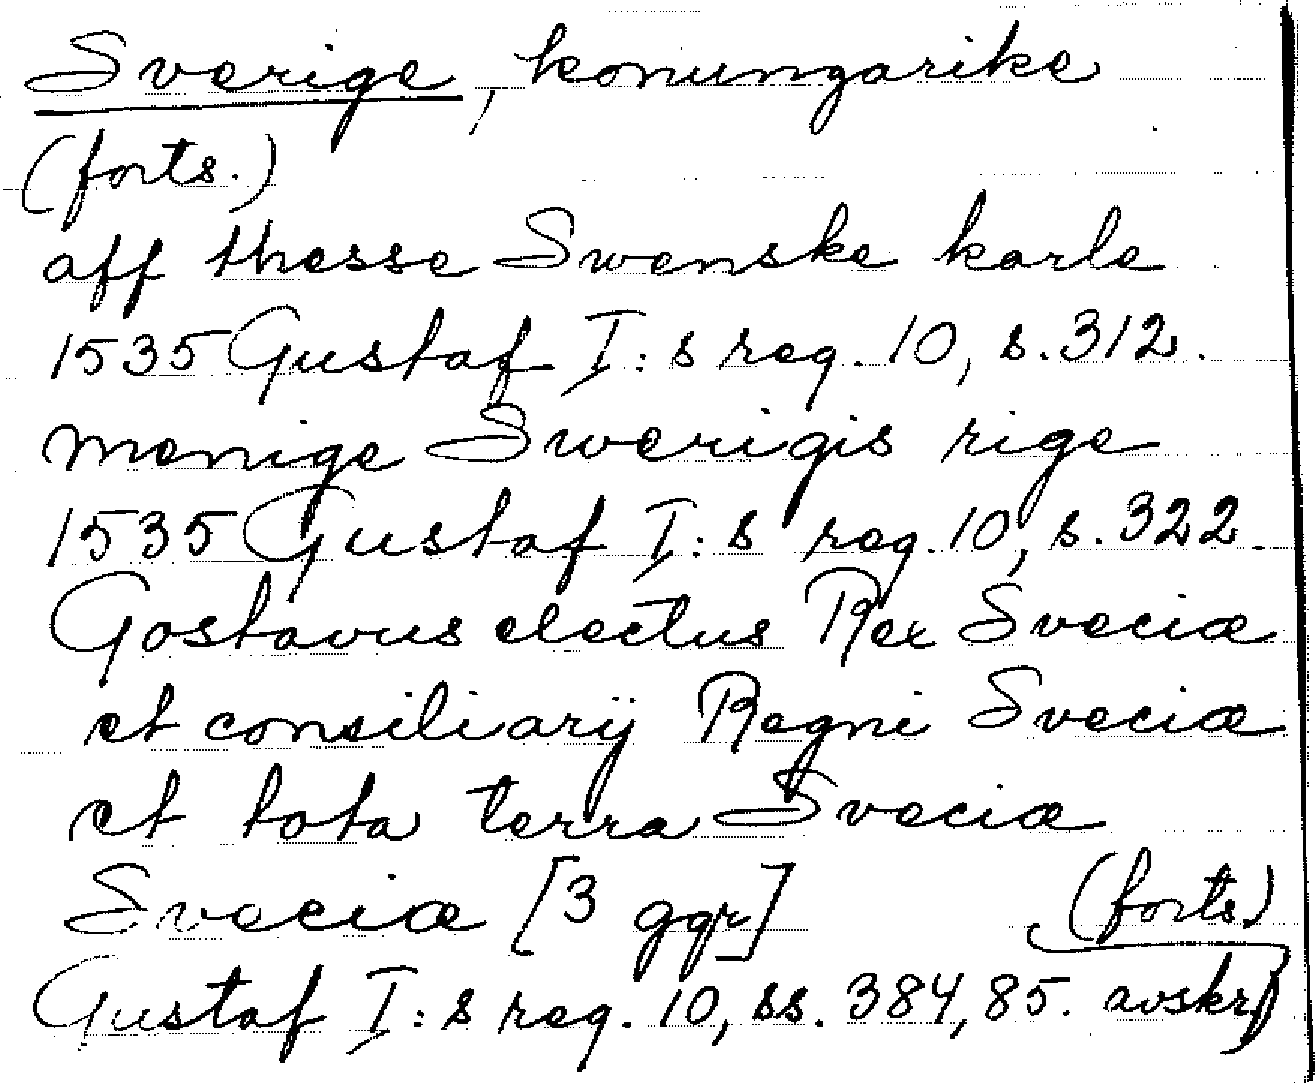 Sverige, konungarike
(forts.)
aff thesse Swenske karle
1535 Gustaf I:s reg. 10, s. 312.
menige Swerigis rige
1535 Gustaf I:s reg. 10, s. 322.
Gostavus electus Rex Sveciæ
et consiliarij Regni Sveciæ
et tota terra Sveciæ
Sveciæ [3 ggr]
(forts)
Gustaf I:s reg. 10, ss. 384, 85. avskr